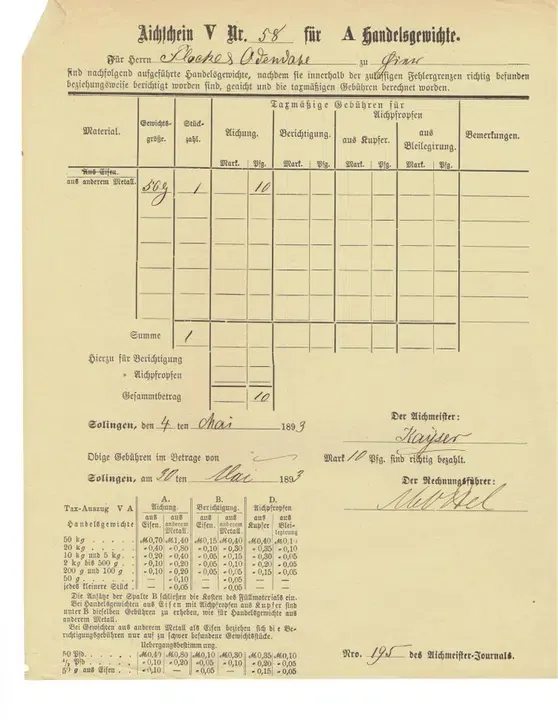 Aichschein V Nr. 58 für A Handelsgewichte.
Für Herrn zu
sind nachfolgend aufgeführte Handelsgewichte, nachdem sie innerhalb der zulässigen Fehlergrenzen richtig befunden
beziehungsweise berichtigt worden sind, geaicht und die taxmäßigen Gebühren berechnet worden.
Material. Gewichts-größe. Stück-zahl. Taxmäßige Gebühren für Bemerkungen.
Aichung. Berichtigung. Aichpfropfen
aus Kupfer. aus Bleilegirung.
Mark. Pfg. Mark. Pfg. Mark. Pfg. Mark. Pfg.
Aus Eisen.
aus anderem Metall. 50g 1 10
Summe 1
Hierzu für Berichtigung
" Aichpfropfen
Gesammtbetrag 10
Solingen, den 4 ten Mai 1893
Der Aichmeister:
Kayser
Obige Gebühren im Betrage von Mark 10 Pfg. sind richtig bezahlt.
Solingen, am 20 ten Mai 1893
Der Rechnungsführer:
Tax-Auszug V A
Handelsgewichte
A. Aichung. B. Berichtigung. D. Aichpfropfen
aus Eisen. aus anderem Metall. aus Eisen. aus anderem Metall. aus Kupfer aus Bleilegierung
50 kg . . . . . M 0,70 M 1,40 M 0,15 M 0,40 M 0,40 M 0,1
20 kg . . . . . - 0,40 - 0,80 - 0,10 - 0,30 - 0,35 - 0,10
10 kg und 5 kg . - 0,20 - 0,40 - 0,05 - 0,15 - 0,30 - 0,05
2 kg bis 500 g . - 0,10 - 0,20 - 0,05 - 0,10 - 0,20 - 0,05
200 g und 100 g . - 0,10 - 0,20 - 0,05 - 0,05 - 0,15 - 0,05
50 g . . . . . — - 0,10 — - 0,05 — —
jedes kleinere Stück . — - 0,05 — - 0,05 — —
Die Ansätze der Spalte D schließen die Kosten des Füllmaterials ein.
Bei Handelsgewichten aus Eisen mit Aichpfropfen aus Kupfer sind
unter B dieselben Gebühren zu erheben, wie für Handelsgewichte aus
anderem Metall.
Bei Gewichten aus anderem Metall als Eisen beziehen sich die Be-
richtigungsgebühren nur auf zu schwer befundene Gewichtsstücke.
Uebergangsbestimmung.
50 Pfd. . . . . M 0,40 M 0,80 M 0,10 M 0,30 M 0,35 M 0,10
Pfd. . . . . - 0,10 - 0,20 - 0,05 - 0,10 - 0,20 - 0,05
50 g aus Eisen - 0,10 — - 0,05 — - 0,15 - 0,05
Nro. 195 des Aichmeister-Journals.